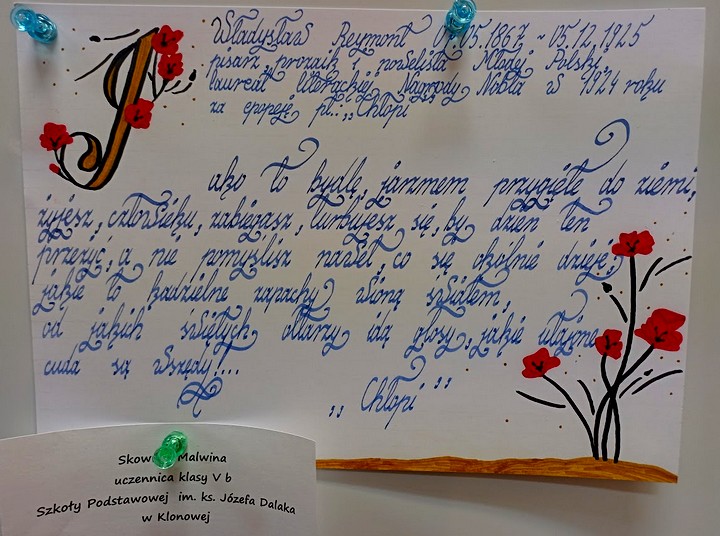 Władysław Reymont 07.05.1867 ~ 05.12.1925
pisarz, prozaik i nowelista Młodej Polski,
laureat literackiej Nagrody Nobla w 1924 roku
za epopeję pt.: „Chłopi”
Jako to bydlę, jarzmem przygięte do ziemi,
żyjesz, człowieku, zabiegasz, turbujesz się, by dzień ten
przeżyć, a nie pomyślisz nawet, co się okólnie dzieje,
jakie to kadzielne zapachy wioną światem,
od jakich świętych ołtarzy idą głosy, jakie utajone
cuda są wszędy!...
„Chłopi”
Malwina
uczennica klasy V b
Szkoły Podstawowej im. ks. Józefa Dalaka
w Klonowej